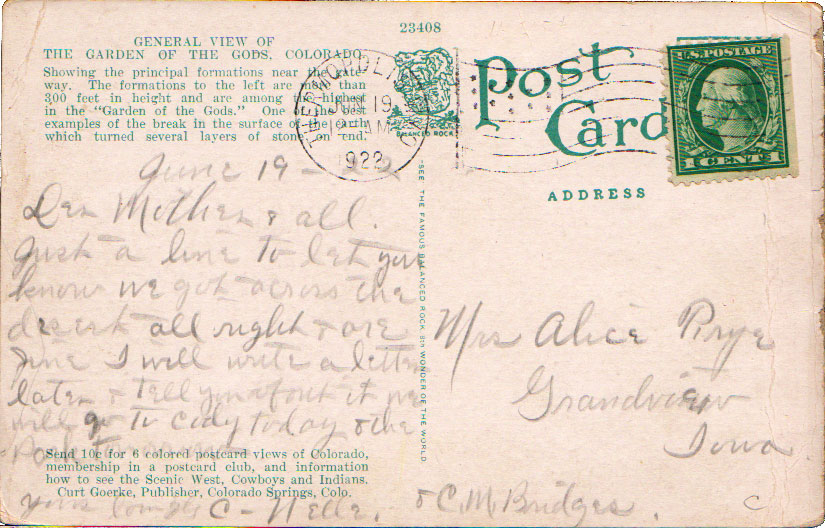 23408
GENERAL VIEW OF
THE GARDEN OF THE GODS, COLORADO
Showing the principal formations near the gate-
way. The formations to the left are more than
300 feet in height and are among the highest
in the "Garden of the Gods." One of the best
examples of the break in the surface of the earth
which turned several layers of stone on end.
BALANCED ROCK
THERMOPOLIS
JUN 19
AM
1922
Post
Card
U.S. POSTAGE
1 CENT 1
ADDRESS
June 19 -
Dear Mother & all.
Just a line to let you
know we got across the
desert all right & are
fine I will write a letter
later & tell you about it we
will go to Cody today & the
Park tomorrow
Send 10c for 6 colored postcard views of Colorado,
membership in a postcard club, and information
how to see the Scenic West, Cowboys and Indians.
Curt Goerke, Publisher, Colorado Springs, Colo.
yours C - Nelle.
& C. M. Bridges.
SEE THE FAMOUS BALANCED ROCK 8TH WONDER OF THE WORLD
Mrs Alice Prye
Grandview
Iowa
C